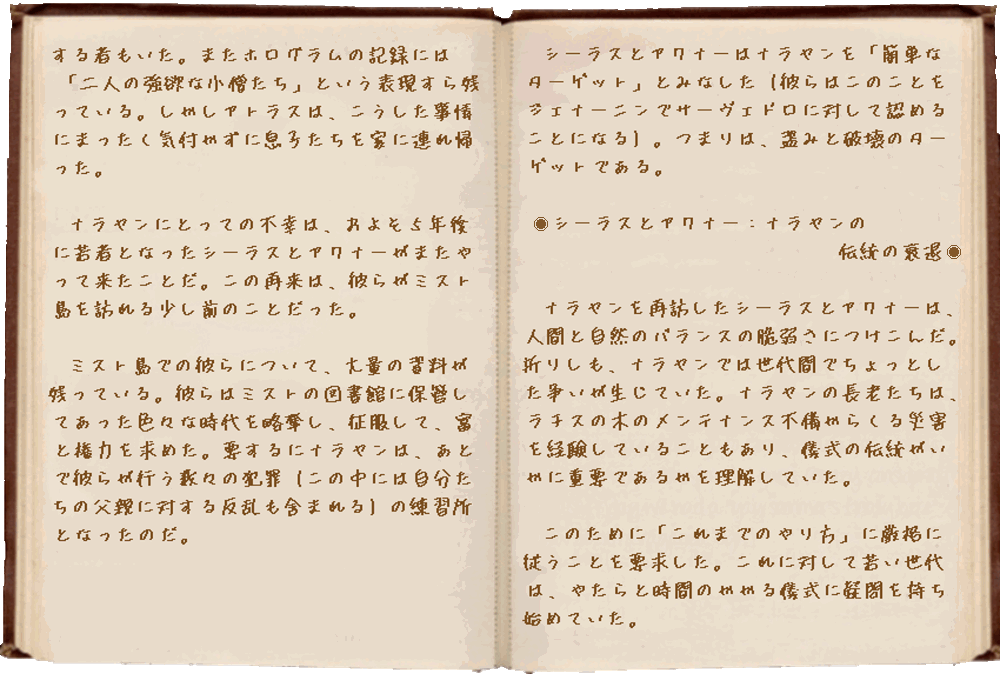 する者もいた。またホログラムの記録には
「二人の強欲な小僧たち」という表現すら残
っている。しかしアトラスは、こうした事情
にまったく気付かずに息子たちを家に連れ帰
った。
ナラヤンにとっての不幸は、およそ5年後
に若者となったシーラスとアクナーがまたや
って来たことだ。この再来は、彼らがミスト
島を訪れる少し前のことだった。
ミスト島での彼らについて、大量の資料が
残っている。彼らはミストの図書館に保管し
てあった色々な時代を略奪し、征服して、富
と権力を求めた。要するにナラヤンは、あと
で彼らが行う数々の犯罪(この中には自分た
ちの父親に対する反乱も含まれる)の練習所
となったのだ。
シーラスとアクナーはナラヤンを「簡単な
ターゲット」とみなした(彼らはこのことを
ジェナーニンでサーヴェドロに対して認める
ことになる)。つまりは、盗みと破壊のター
ゲットである。
◉シーラスとアクナー:ナラヤンの
伝統の衰退◉
ナラヤンを再訪したシーラスとアクナーは、
人間と自然のバランスの脆弱さにつけこんだ。
折りしも、ナラヤンでは世代間でちょっとし
た争いが生じていた。ナラヤンの長老たちは、
ラチスの木のメンテナンス不備からくる災害
を経験していることもあり、儀式の伝統がい
かに重要であるかを理解していた。
このために「これまでのやり方」に厳格に
従うことを要求した。これに対して若い世代
は、やたらと時間のかかる儀式に疑問を持ち
始めていた。